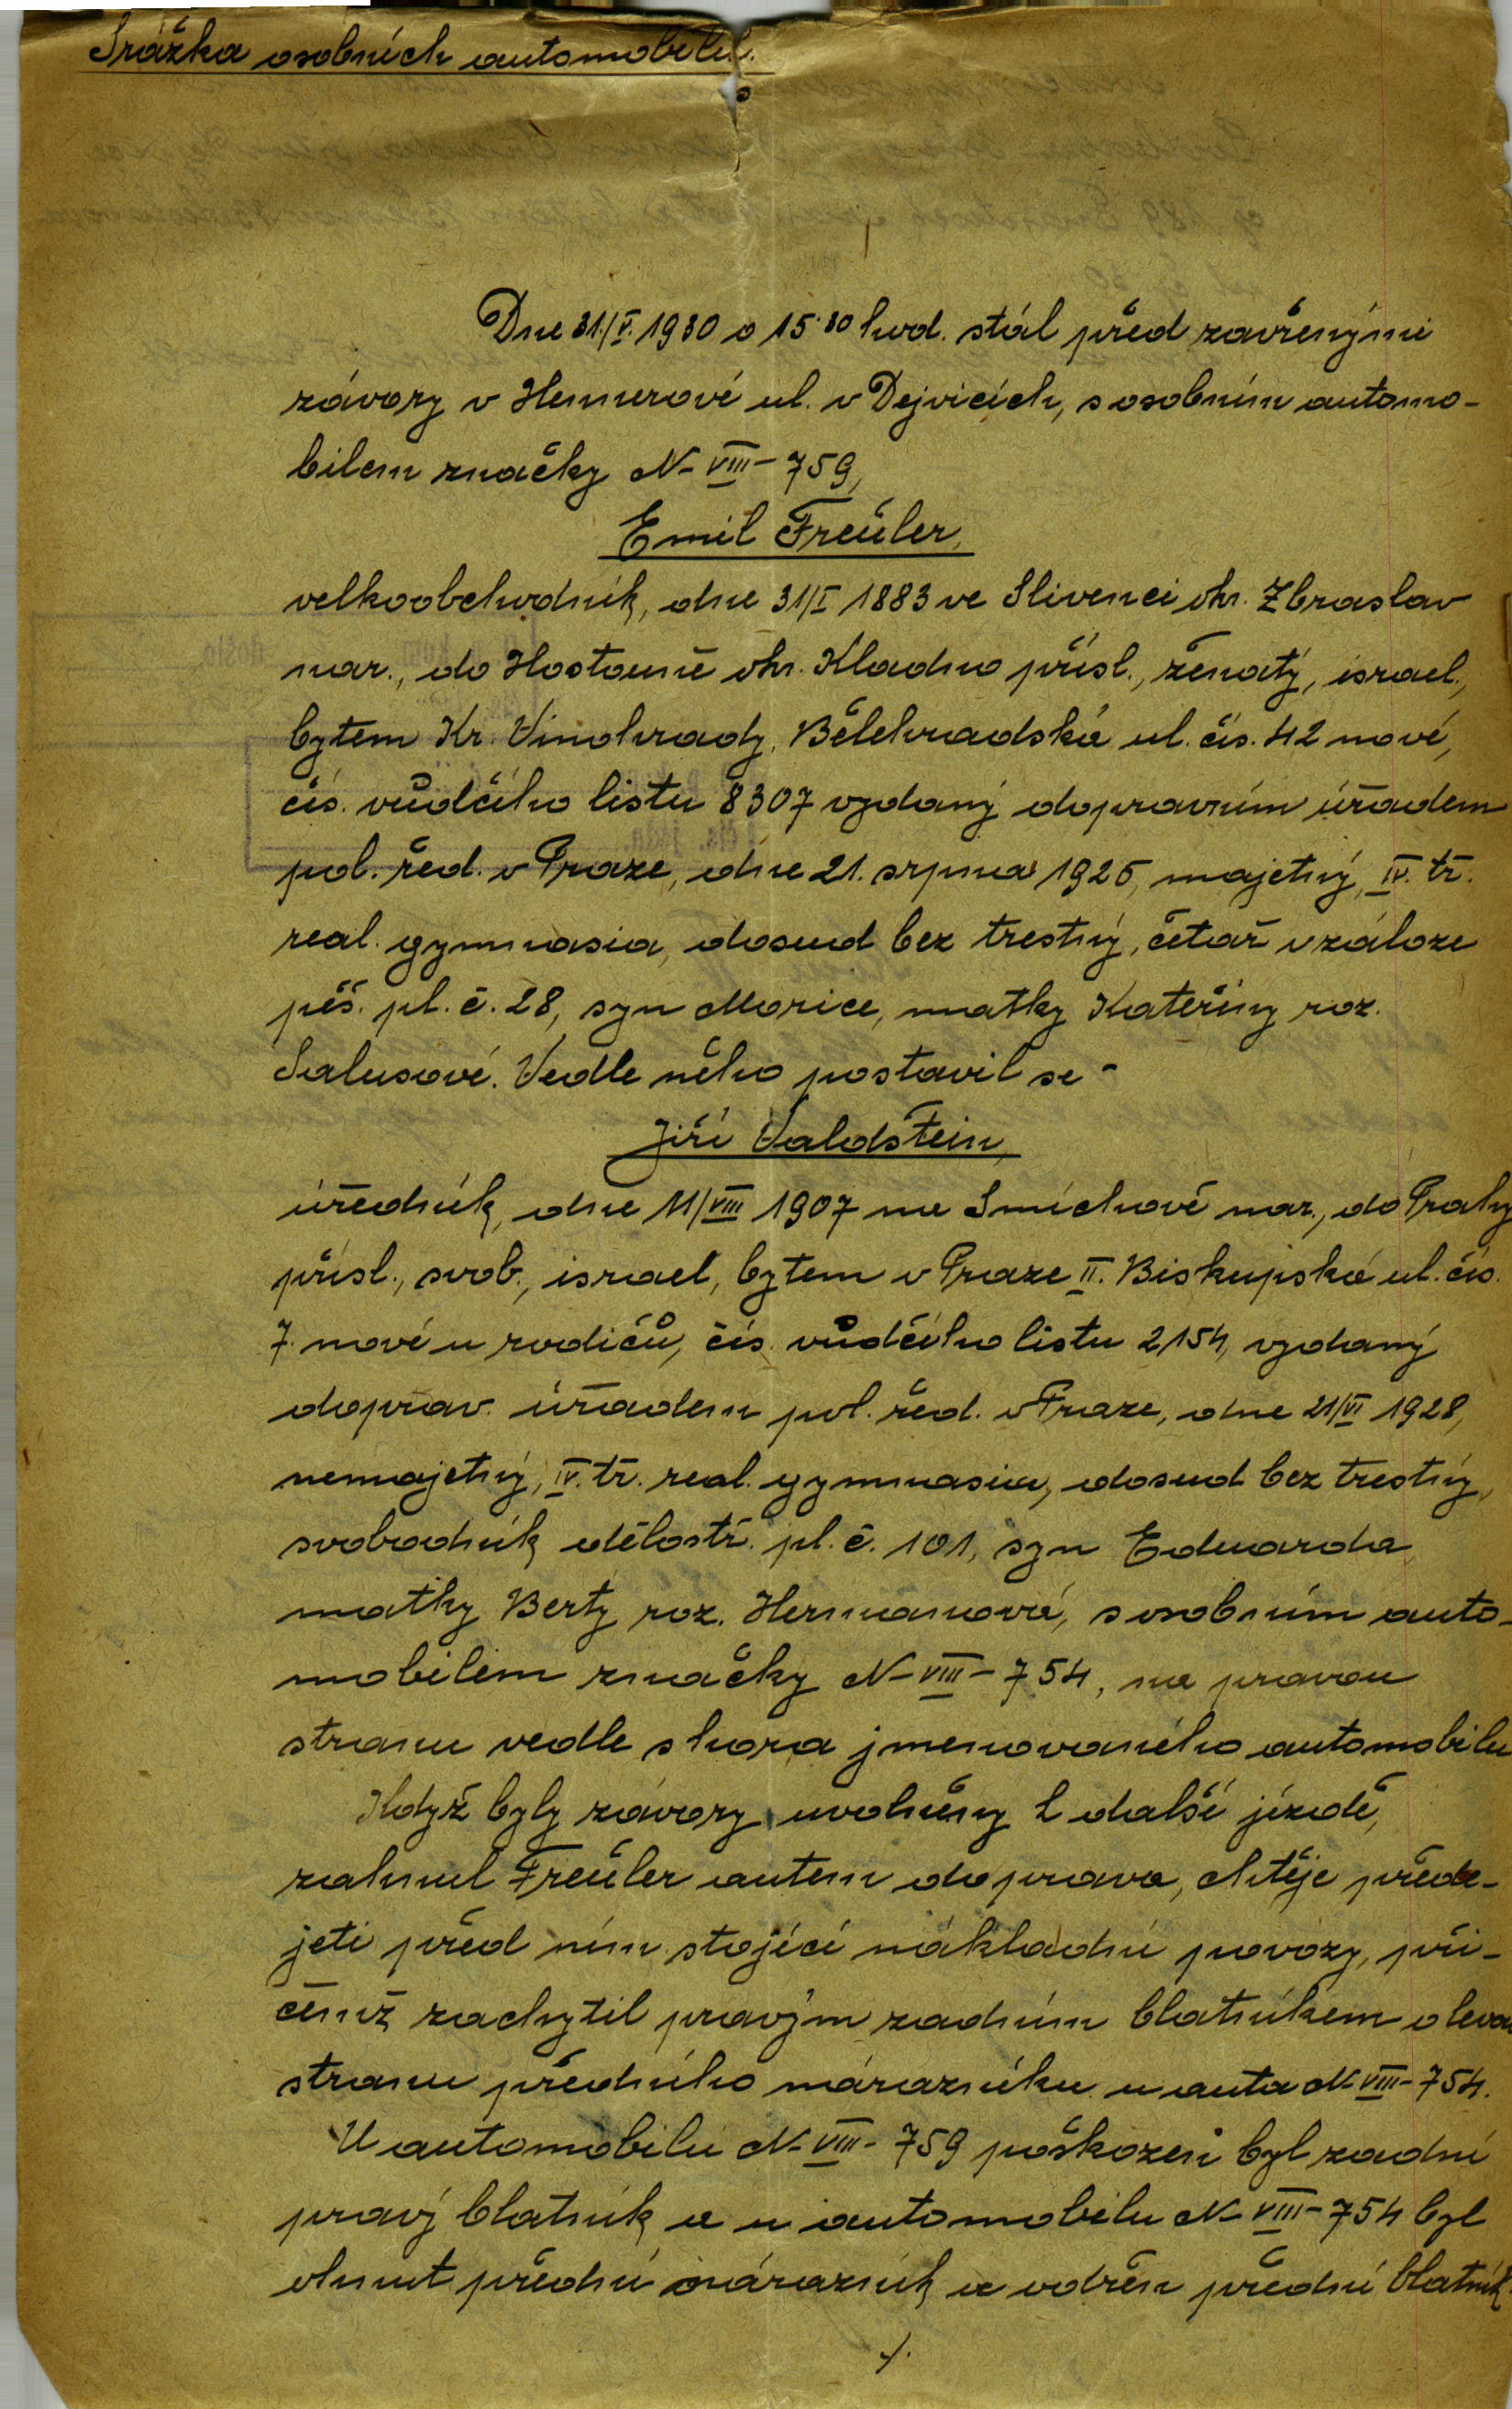 Srážka osobních automobilů.
Dne 31./V. 1930 o 15·30 hod. stál před zavřenými
závory v Hemerově ul. v Dejvicích, s osobním automo-
bilem značky N-VIII-759,
Emil Freüler,
velkoobchodník, dne 31/I 1883 ve Slivenci okr. Zbraslav
nar., do Hostouně okr. Kladno přísl., ženatý, israel.,
bytem Kr. Vinohrady, Bělehradská ul. čís. 42 nové,
čís. vůdčího listu 8307 vydaný dopravním úřadem
pol. řed. v Praze, dne 21. srpna 1925, majetný, IV. tř.
real. gymnasia, dosud bez trestný, četař v záloze
pěš. pl. č. 28, syn Morice, matky Kateřiny roz.
Salusové. Vedle něho postavil se -
Jiří Valdštein,
úředník, dne 11/VIII 1907 na Smíchově nar., do Prahy
přísl., svob., israel, bytem v Praze II. Biskupská ul. čís.
7. nové u rodičů, čís. vůdčího listu 2154, vydaný
doprav. úřadem pol. řed. v Praze, dne 21/VI 1928,
nemajetný, IV. tř. real. gymnasia, dosud bez trestný,
svobodník dělostř. pl. č. 101, syn Eduarda,
matky Berty roz. Heřmanová, s osobním auto-
mobilem značky N-VIII-754, na pravou
stranu vedle shora jmenovaného automobilu
Když byly závory uvolněny k další jízdě,
zahnul Freüler autem do prava, chtěje přede-
jeti před ním stojící nákladní povozy, při-
čemž zachytil pravým zadním blatníkem o levou
stranu předního nárazníku u auta N-VIII-754.
U automobilu N-VIII-759 poškozen byl zadní
pravý blatník a u automobilu N-VIII-754 byl
ohnut přední nárazník a odřen přední blatník.
./.